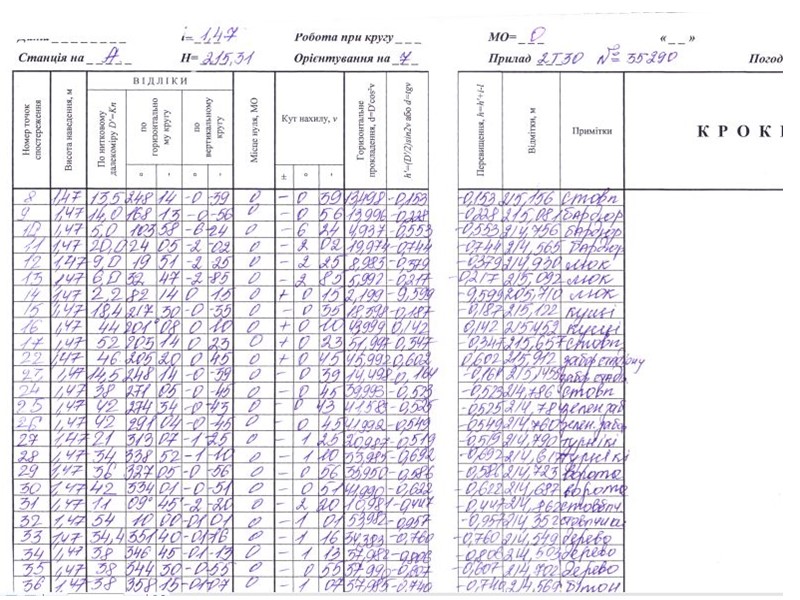 i= 1,47 Робота при кругу_ _ _ МО= 0 « _ _ »
Станція на A H= 215,31 Орієнтування на 7 Прилад 2Т30 № 35290 Погод
Номер точок спостереження
Висота наведення, м
ВІДЛІКИ
По нитковому далекоміру D'=Kn
по горизонтальному кругу
по вертикальному кругу
Місце нуля, МО
Кут нахилу, ν
Горизонтальне прокладення, d=D'cos²ν
h'=(D'/2)sin2ν або d=tgν
Перевищення, h=h'+i-l
Відмітки, м
Примітки
КРОКІ
° ' ° ' ± ° '
8 1,47 13,5 248 14 -0 -39 0 - 0 39 13,498 -0,153 -0,153 215,156 стовп
9 1,47 14,0 168 13 -0 -56 0 - 0 56 13,996 -0,228 -0,228 215,081 бардюр
10 1,47 5,0 103 58 -6 -24 0 - 6 24 4,937 -0,553 -0,553 214,756 бардюр
11 1,47 20,0 24 05 -2 -02 0 - 2 02 19,974 -0,744 -0,744 214,565 бардюр
12 1,47 9,0 19 51 -2 -25 0 - 2 25 8,983 -0,379 -0,379 214,930 люк
13 1,47 6,0 32 47 -2 -85 0 - 2 85 5,992 -0,217 -0,217 215,092 люк
14 1,47 2,2 82 14 0 15 0 + 0 15 2,199 -9,599 -9,599 205,710 люк
15 1,47 18,4 217 30 -0 -35 0 - 0 35 18,398 -0,187 -0,187 215,122 кущі
16 1,47 44 201 08 0 10 0 + 0 10 43,999 0,142 0,142 215,452 кущі
17 1,47 52 203 14 0 23 0 + 0 23 51,997 0,347 -0,347 215,657 стовп
22 1,47 46 205 20 0 45 0 + 0 45 45,992 0,602 0,602 215,912
1,47 14,5 248 14 -0 -39 0 - 0 39 14,498 -0,164 -0,164
24 1,47 38 271 05 -0 -45 0 - 0 45 -0,523 -0,523 214,786 стовп
25 1,47 42 274 34 -0 -43 0 - 0 43 -0,525 -0,525
26 1,47 42 291 04 -0 -45 0 - 0 45 41,992 -0,549 -0,549 214,760
27 1,47 21 313 07 -1 -25 0 - 1 25 20,987 -0,519 -0,519 214,790 турнікі
28 1,47 34 338 52 -1 -10 0 - 1 10 33,985 -0,692 -0,692 214,617 турнікі
29 1,47 36 327 05 -0 -56 0 - 0 56 -0,586 -0,586 214,723 ворота
30 1,47 42 334 01 -0 -51 0 - 0 51 41,990 -0,622 -0,622 214,687 ворота
31 1,47 11 09 45 -2 -20 0 - 2 20 10,981 -0,447 -0,447 214,862
32 1,47 54 10 00 -01 01 0 - 1 01 53,982 -0,957 -0,957 214,352
33 1,47 34,4 351 40 -01 16 0 - 1 16 34,383 -0,760 -0,760 214,549 дерево
34 1,47 38 346 45 -01 -13 0 - 1 13 37,982 -0,806 -0,806 214,503 дерево
35 1,47 38 344 30 -0 -55 0 - 0 55 37,990 -0,607 -0,607 214,702 дерево
36 1,47 38 358 15 -01 07 0 - 1 07 37,985 -0,740 -0,740 214,569